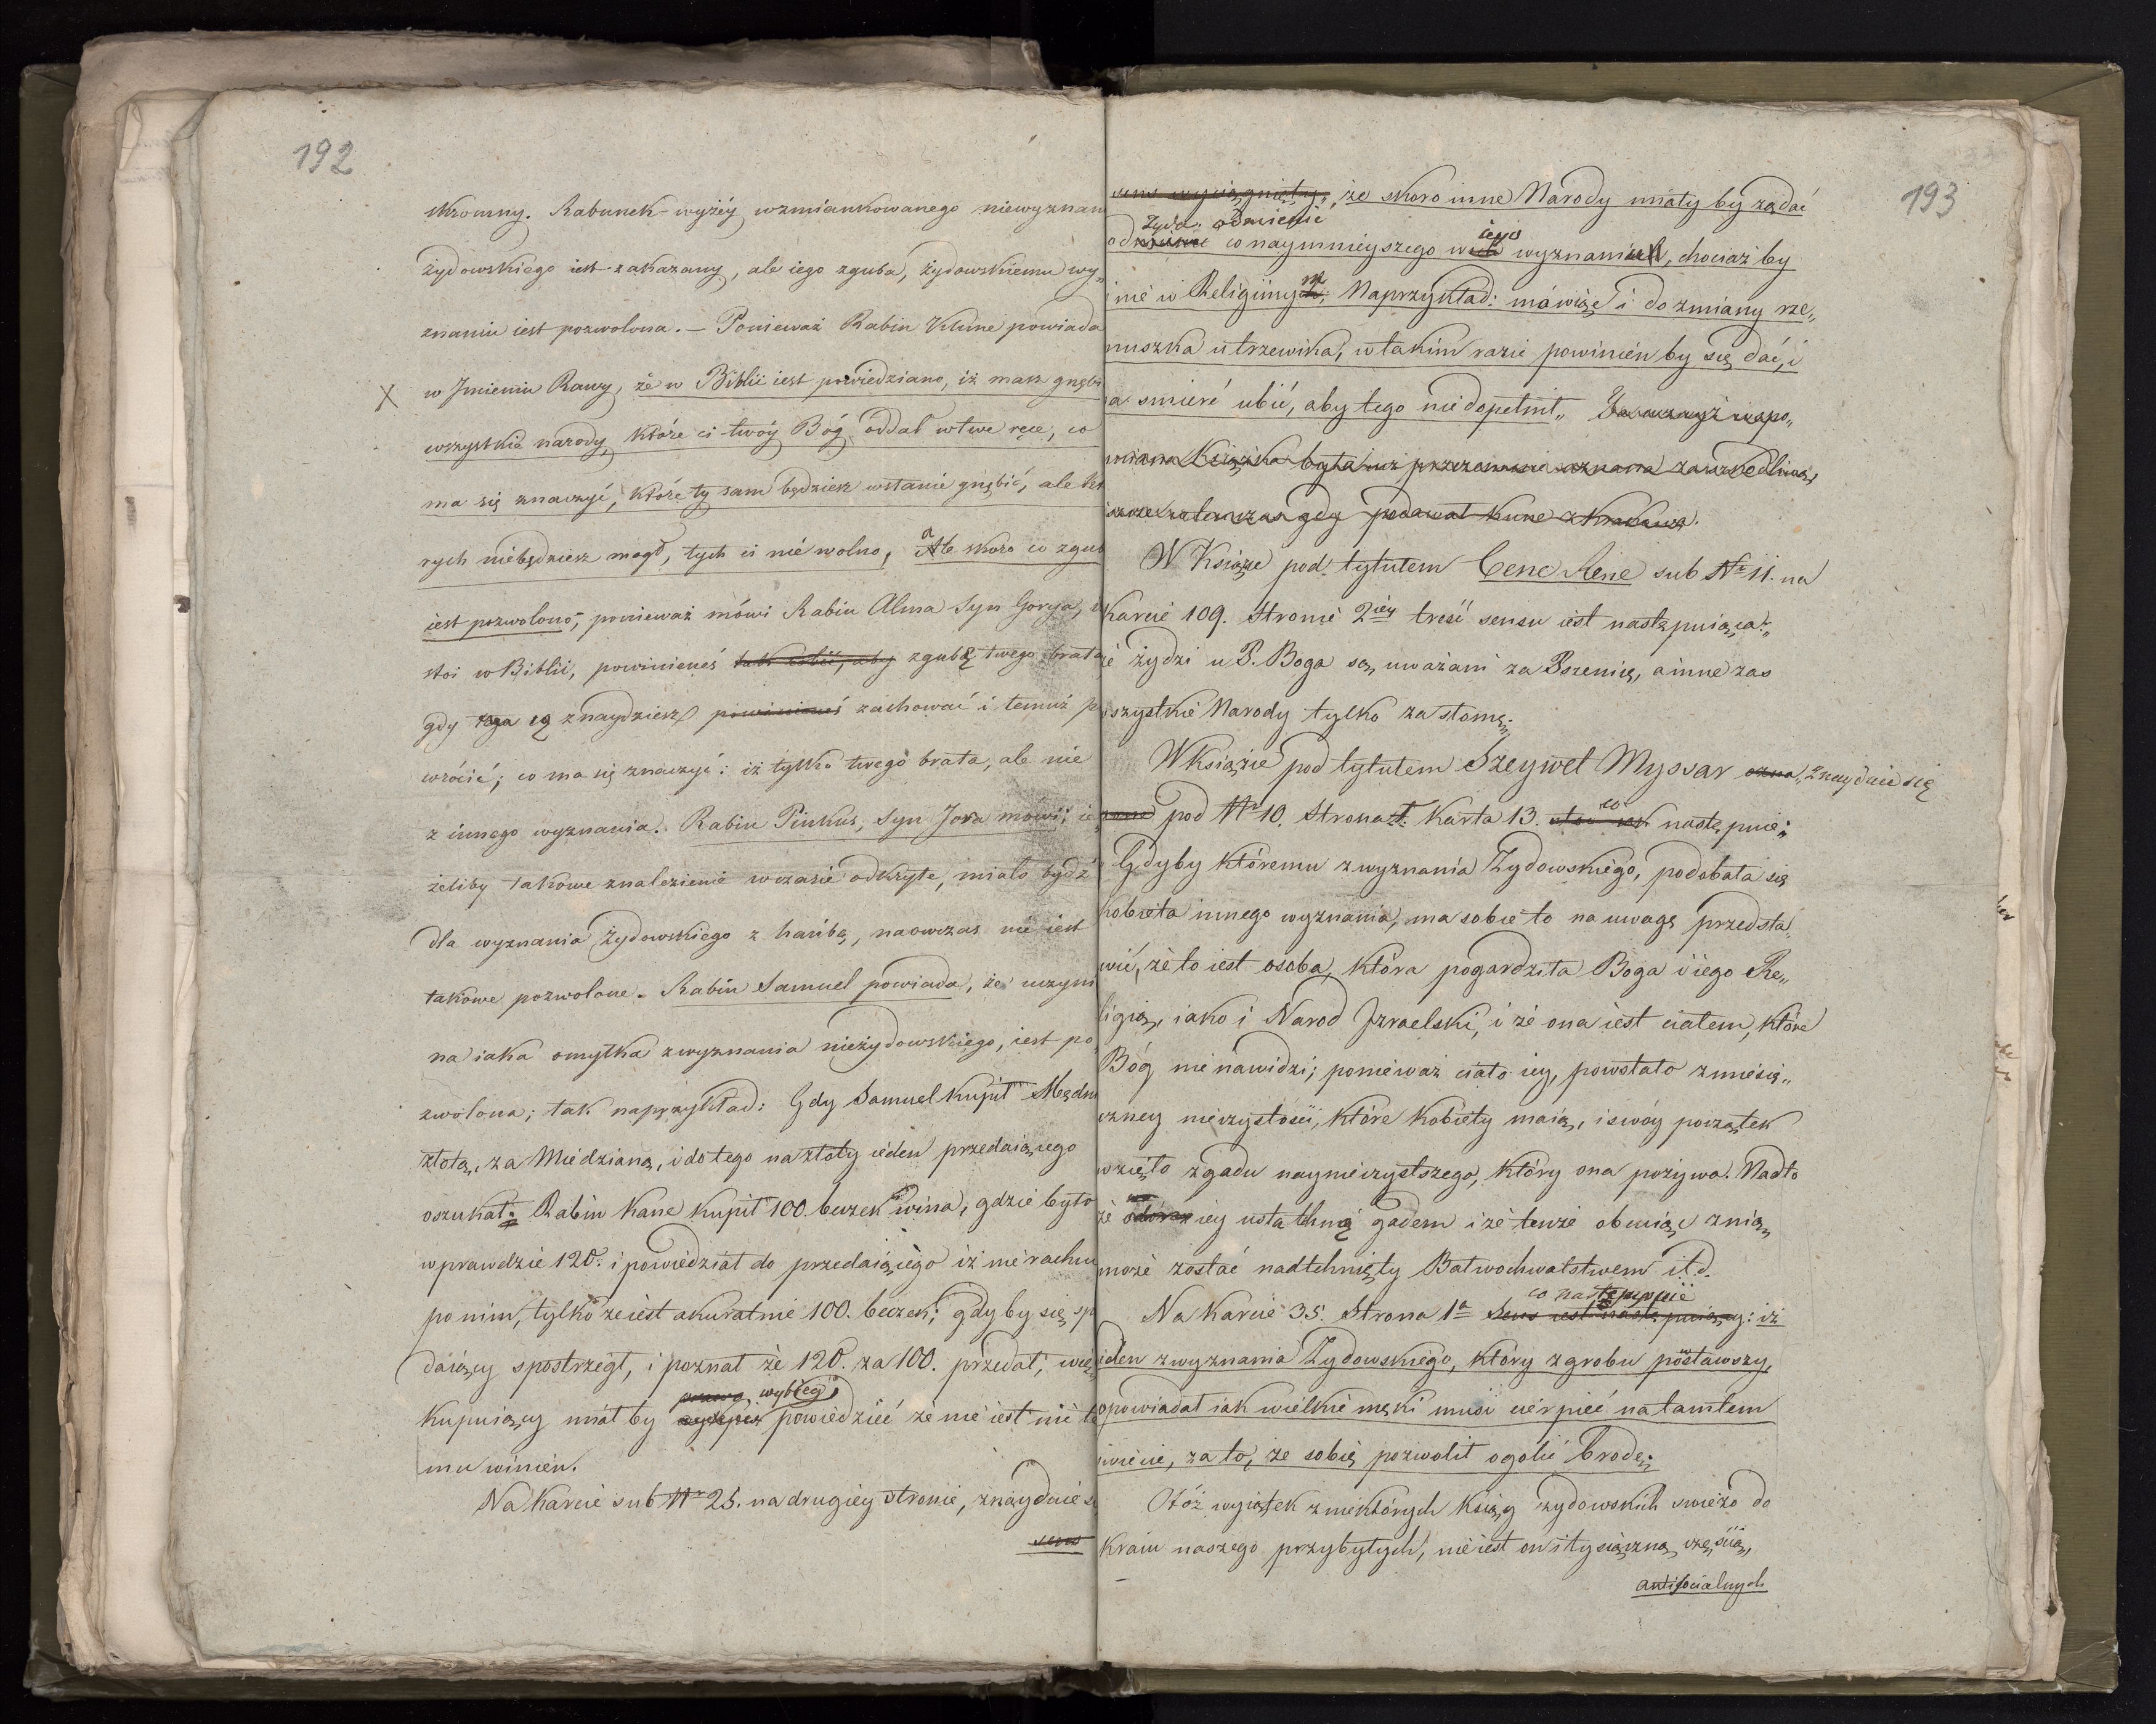 192
skromny. Rabunek wyżéy wzmiankowanego niewyznan
żydowskiego iest zakazany, ale iego zguba, żydowskiemu wy„
znaniu iest pozwolona. — Ponieważ Rabin Klune powiada
X w Jmieniu Rawy, że w Biblii iest powiedziano, iż masz gnębi
wszystkie narody, które ci twóy Bóg oddał w twe ręce, co
ma się znaczyć, które ty sam będziesz wstanie gnębić, ale kt
rych niebędziesz mogł, tych ci nie wolno, ale skoro co zgub
iest pozwolono, ponieważ mówi Rabin Alma Syn Gorya,
stoi w Biblii, powinieneś tak robić, aby zgubę twego brata
gdy ią znaydziesz powinieneś zachować i temuż p
wrócić; co ma się znaczyć: iż tylko twego brata, ale nie
z innego wyznania. Rabin Pinkus, Syn Jora mówi, ie
żeliby takowe znalezienie wczasie odkryte, miało bydź
dla wyznania Żydowskiego z hańbą, naowczas nie iest
takowe pozwolone. Rabin Samuel powiada, że uczyni
na iaka omyłka z wyznania nieżydowskiego, iest po„
zwolona; tak naprzykład: Gdy Samuel kupił Mędn
złotą, za Miedzianą, i do tego na złoty ieden przedaiącego
oszukał. Rabin Kane kupił 100. beczek wina, gdzie było
wprawdzie 120. i powiedział do przedaiącego iż nie rachu
po nim, tylko że iest akuratnie 100. beczek; gdyby się sp
daiący spostrzegł, i poznał że 120. za 100. przedał, wię
prawo wybieg
kupuiący miał by powiedzieć że nie iest nic te
mu winien.
Na karcie sub Nr 25. na drugiéy stronie, znayduie s
sens
193
sens wyciągnięty, że skoro inne Narody miały by żądać
Żyda odmienie
od co naymnieyszego w iego wyznaniu, chociaż by
nie w Religiinym. Naprzykład: mówiąc i do zmiany rze„
muszka u trzewika, w takim razie powinien by się dać, i
na smierć ubić, aby tego nie dopełnił„
mniana Książka była iuż przezemnie uznana za szkodliwą,
ieszcze natenczas gdy podawał Kune z Krakowa.
W Książce pod tytułem Cene Rene sub Nr 11. na
Karcie 109. Stronie 2iéy treść sensu iest następuiąca:„
że żydzi u P. Boga są uważani za Pszenicę, a inne zas
wszystkie Narody tylko za słomę.
W ksiązce pod tytułem Szeywet Myssar znayduie się
pod Nr 10. Strona 1. Karta 13. co następuie:
Gdyby któremu z wyznania Żydowskiego, podobała się
kobieta innego wyznania, ma sobie to na uwagę przedsta„
wić, że to iest osoba, która pogardziła Boga i iego Re„
ligią, iako i Narod Jzraelski, i że ona iest ciałem, które
Bóg nie nawidzi; ponieważ ciało iéy, powstało z miesię„
czney nieczystości, które kobiéty maią, i swóy początek
wzięło z gadu naynieczystszego, który ona pożywa. Nadto
że iéy usta tchną gadem i że tenże obcuiąc z nią,
może zostać nadtchnięty Bałwochwalstwem itd.
co następuie
Na Karcie 35. Strona 1a Sens iest następuiący: iż
ieden z wyznania Żydowskiego, który z grobu powstawszy,
opowiadał iak wielkie męki musi cierpieć na tamtem
świecie, za to, że sobie pozwolił ogolić brodę.
Otóż wyiątek z niektórych ksiąg żydowskich swieżo do
kraiu naszego przybyłych, nie iest on i tysiączną częścią,
antisocialnych